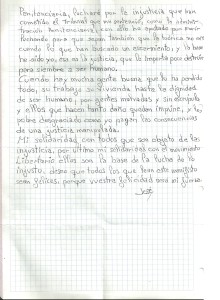 Penitenciaria, luchare por la injusticia que han
cometido el Tribunal que me sentencio, como la adminis-
tración Penitenciaria, con ello he optado por seguir
luchando para que sepan también que la justicia no es
cuando lo que han buscado un escarmiento, y la base
he sido yo, esa es la justicia, que le importa poco destruir
para siempre a un ser humano.
Cuando hay mucha gente buena, que lo ha perdido
todo, su trabajo, su vivienda hasta la dignidad
de ser humano, por gentes malvadas y sin escrúpulos
y ellos que hacen tanto daño quedan impune, y los
pobres desgraciados como yo pagan las consecuencias
de una justicia manipulada.
Mi solidaridad con todos que son objeto de las
injusticia, por último mi solidaridad con el movimiento
Libertario ellos son la base de la lucha de lo
injusto, deseo que todos los que lean este manifiesto
sean felices, porque vuestra felicidad será mi fuerza.
José